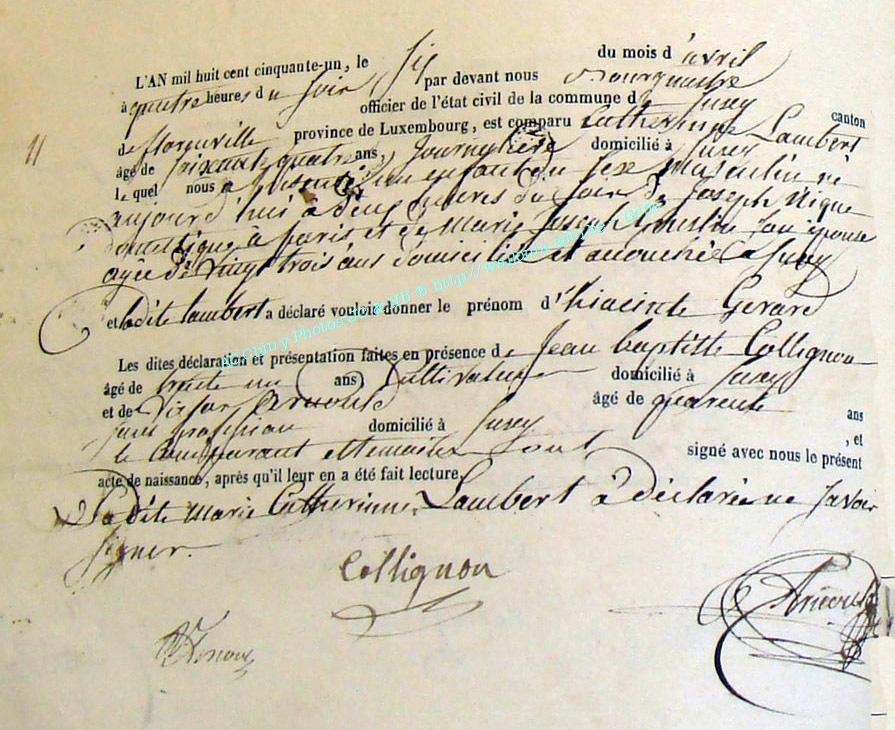 L'AN mil huit cent cinquante-un, le six du mois d'avril
à quatre heures du soir par devant nous Bourgmestre
officier de l'état civil de la commune d Suxy canton
11
de florenville province de Luxembourg, est comparu Catherinne Lambert
âgé de soixante quatre ans, Journalière domicilié à Suxy
lequel nous a présenté un enfant du sexe Masculin né
aujourd'hui à deux heures du soir de Joseph
domestique à paris et de Marie Joseph son épouse
agée de vingt trois ans domicilié et accouchée à Suxy
et ladite lambert a déclaré vouloir donner le prénom d'hiacinte Gerard
Les dites déclaration et présentation faites en présence de Jean baptiste Collignon
âgé de trente un ans Cultivateur domicilié à Suxy
et de Victor Arnould âgé de quarente ans
sans profession domicilié à Suxy , et
le Comparant et temoins sont signé avec nous le présent
acte de naissance, après qu'il leur en a été fait lecture.
Ladite Marie Catherinne Lambert à déclarée ne savoir
signer.
Collignon
Arnould